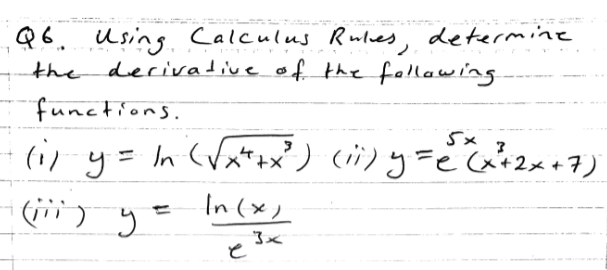 Q6. Using Calculus Rules, determine
the derivative of the following
functions.
(i) y = ln (√x⁴+x³) (ii) y = e⁵ˣ(x³+2x+7)
(iii) y = ln(x) / e³ˣ